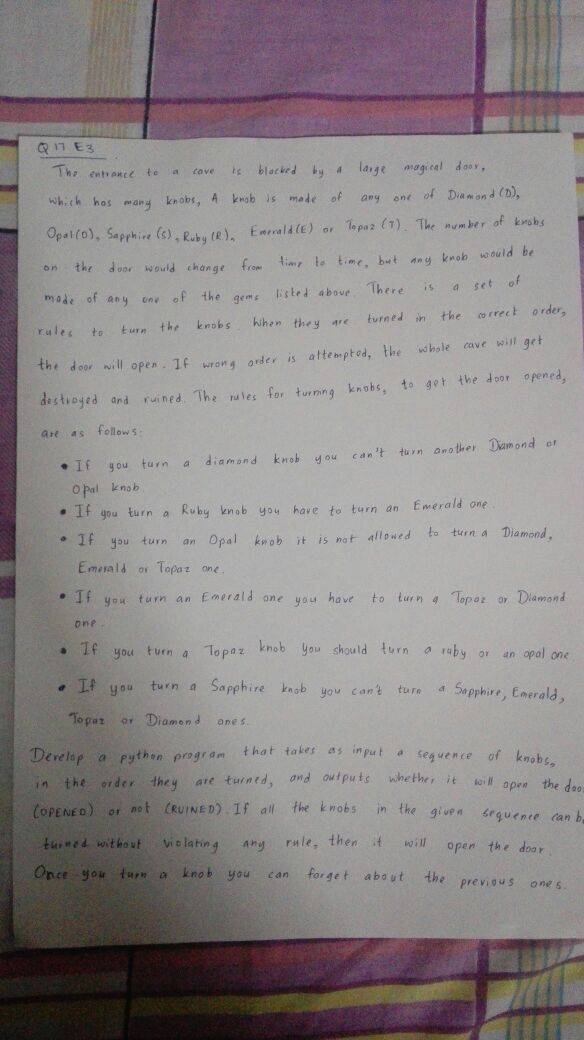 Q 17 E3
The entrance to a cave is blocked by a large magical door,
which has many knobs, A knob is made of any one of Diamond (D),
Opal (O), Sapphire (S), Ruby (R), Emerald (E) or Topaz (T). The number of knobs
on the door would change from time to time, but any knob would be
made of any one of the gems listed above. There is a set of
rules to turn the knobs. When they are turned in the correct order,
the door will open. If wrong order is attempted, the whole cave will get
destroyed and ruined. The rules for turning knobs, to get the door opened,
are as follows:
• If you turn a diamond knob you can't turn another Diamond or
Opal knob
• If you turn a Ruby knob you have to turn an Emerald one.
• If you turn an Opal knob it is not allowed to turn a Diamond,
Emerald or Topaz one.
• If you turn an Emerald one you have to turn a Topaz or Diamond
one.
• If you turn a Topaz knob you should turn a ruby or an opal one
• If you turn a Sapphire knob you can't turn a Sapphire, Emerald,
Topaz or Diamond ones.
Develop a python program that takes as input a sequence of knobs,
in the order they are turned, and outputs whether it will open the door
(OPENED) or not (RUINED). If all the knobs in the given sequence can be
turned without violating any rule, then it will open the door.
Once you turn a knob you can forget about the previous ones.